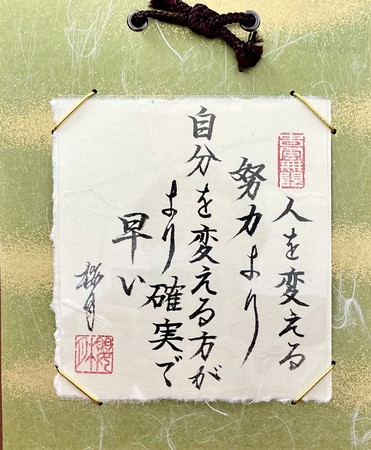 人を変える
努力より
自分を変える方が
より確実で
早い